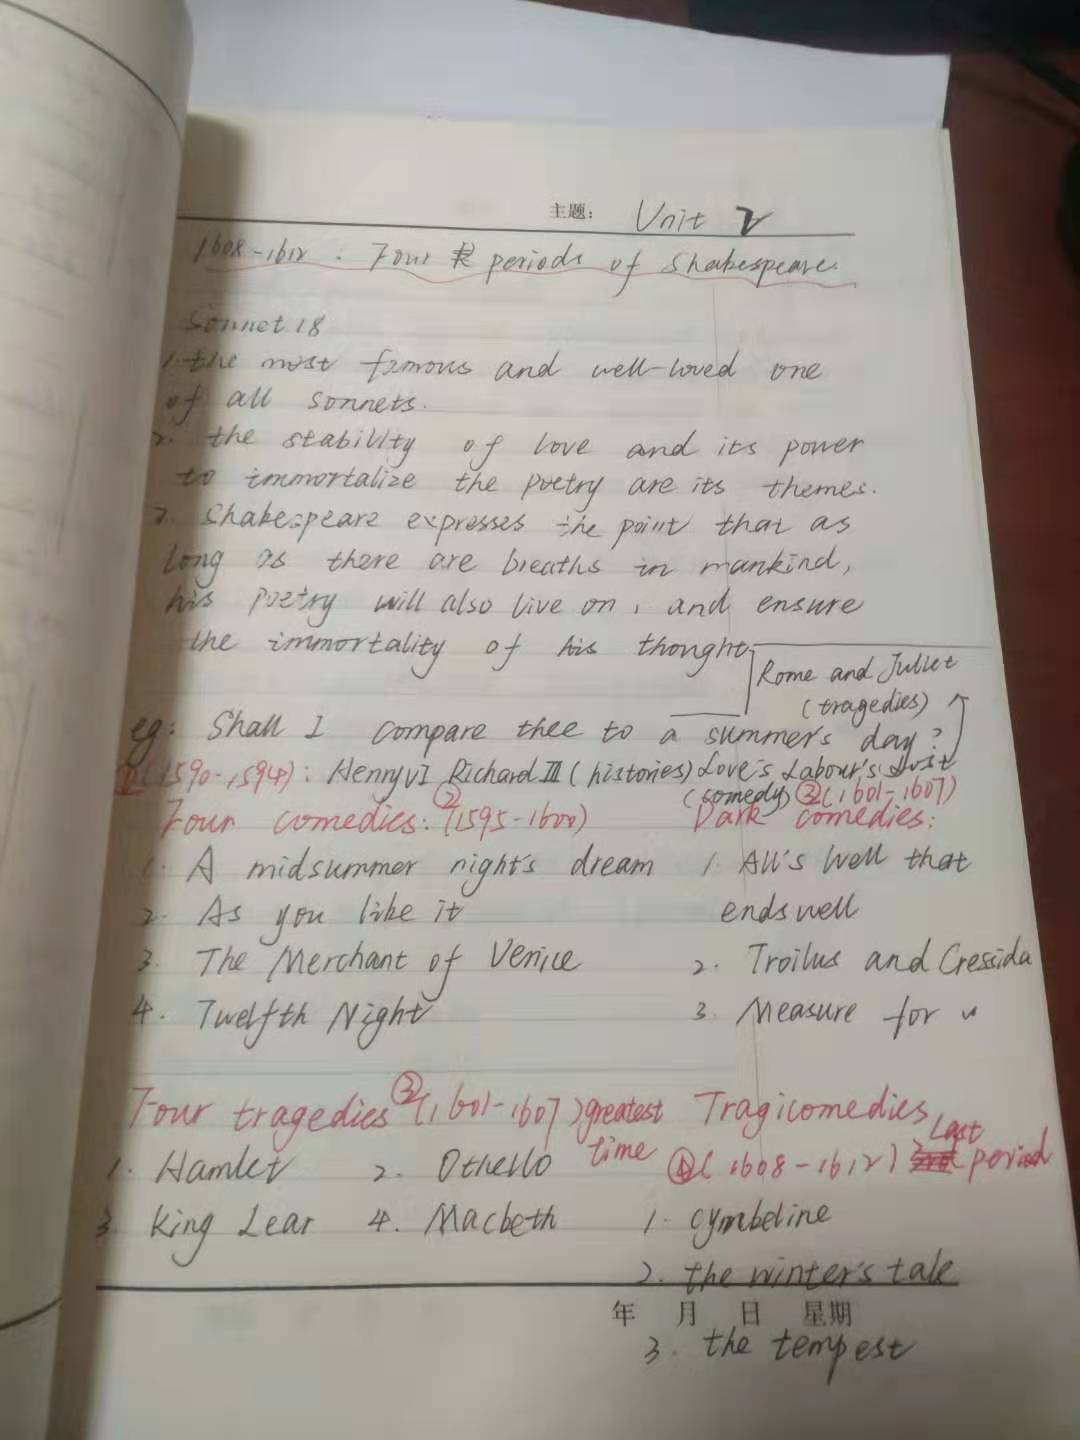 主题: Unit 2
1608-1612: Four periods of Shakespeare.
Sonnet 18
1. the most famous and well-loved one
of all sonnets.
2. the stability of love and its power
to immortalize the poetry are its themes.
3. Shakespeare expresses the point that as
long as there are breaths in mankind,
his poetry will also live on, and ensure
the immortality of his thought
Rome and Juliet
(tragedies)
eg: Shall I compare thee to a summer's day?
①(1590-1594): Henry VI Richard III (histories) Love's Labour's Lost
(comedy) ③(1601-1607)
Four comedies: ②(1595-1600) Dark comedies:
1. A midsummer night's dream 1. All's Well that
2. As you like it ends well
3. The Merchant of Venice 2. Troilus and Cressida
4. Twelfth Night 3. Measure for
Four tragedies ③(1601-1607) greatest Tragicomedies
time ④(1608-1612) Last period
1. Hamlet 2. Othello
3. King Lear 4. Macbeth 1. cymbeline
2. the winter's tale
年 月 日 星期
3. the tempest